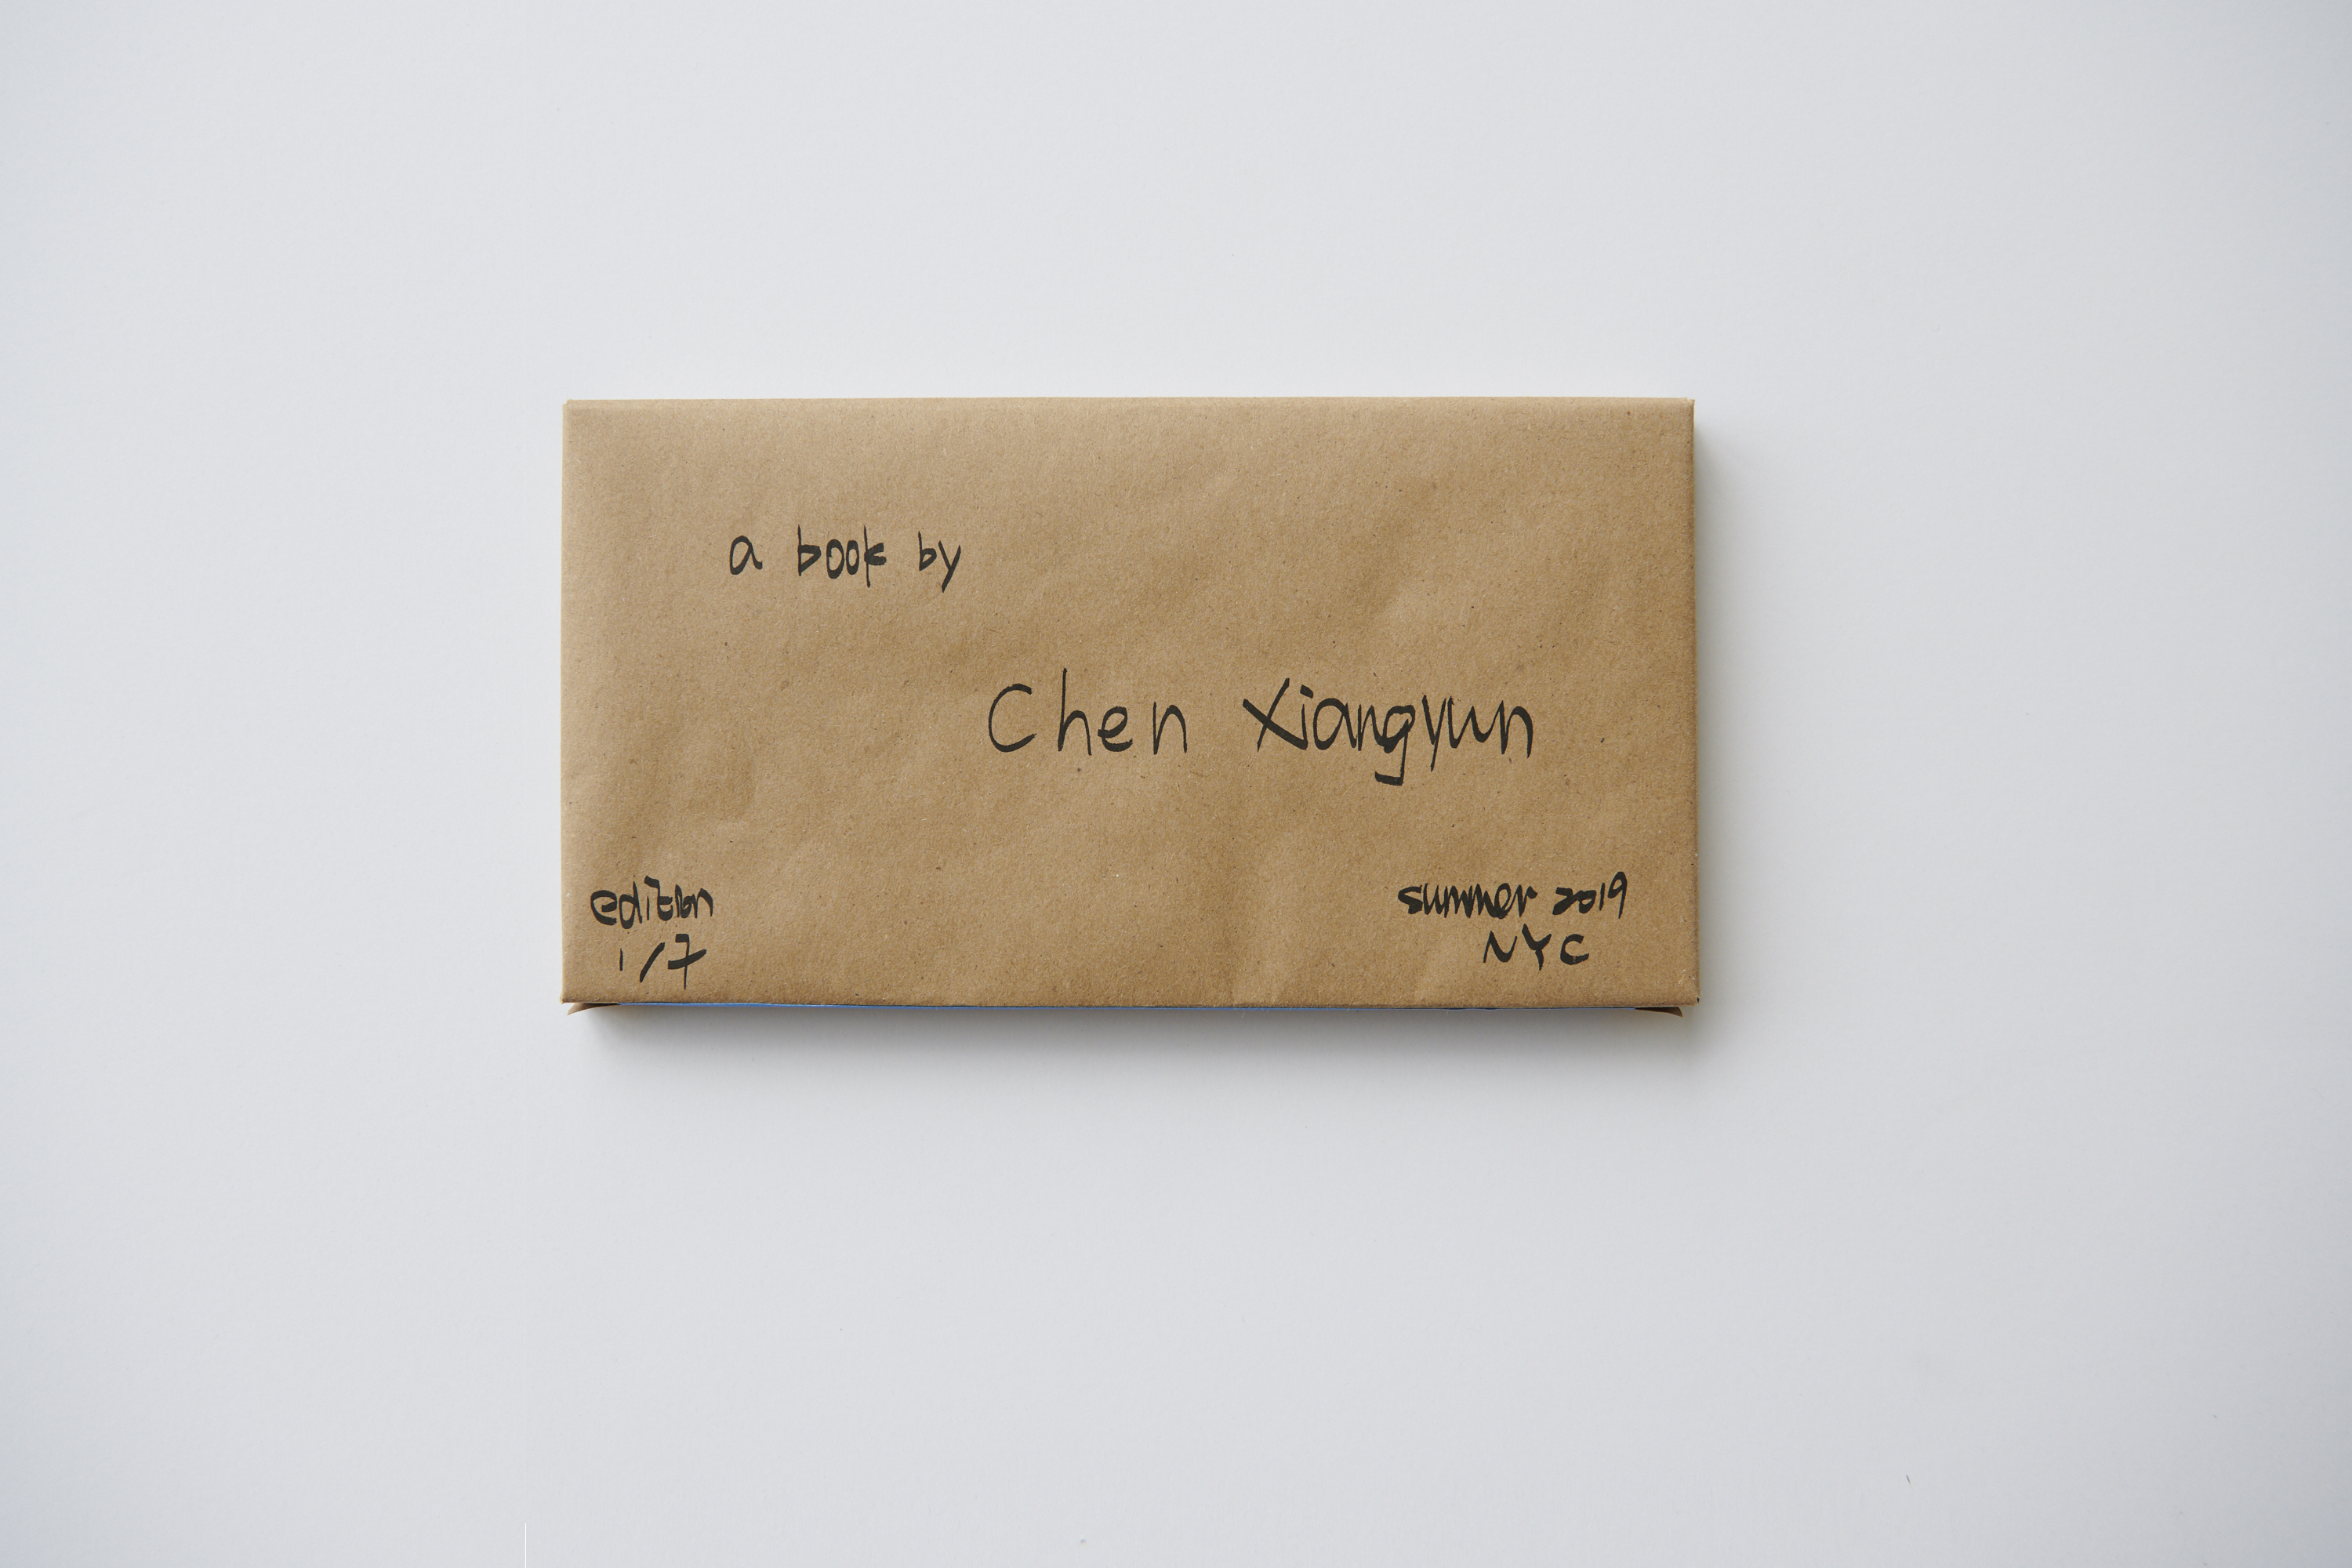 a book by
Chen Xiangyun
edition
1/7
summer 2019
NYC